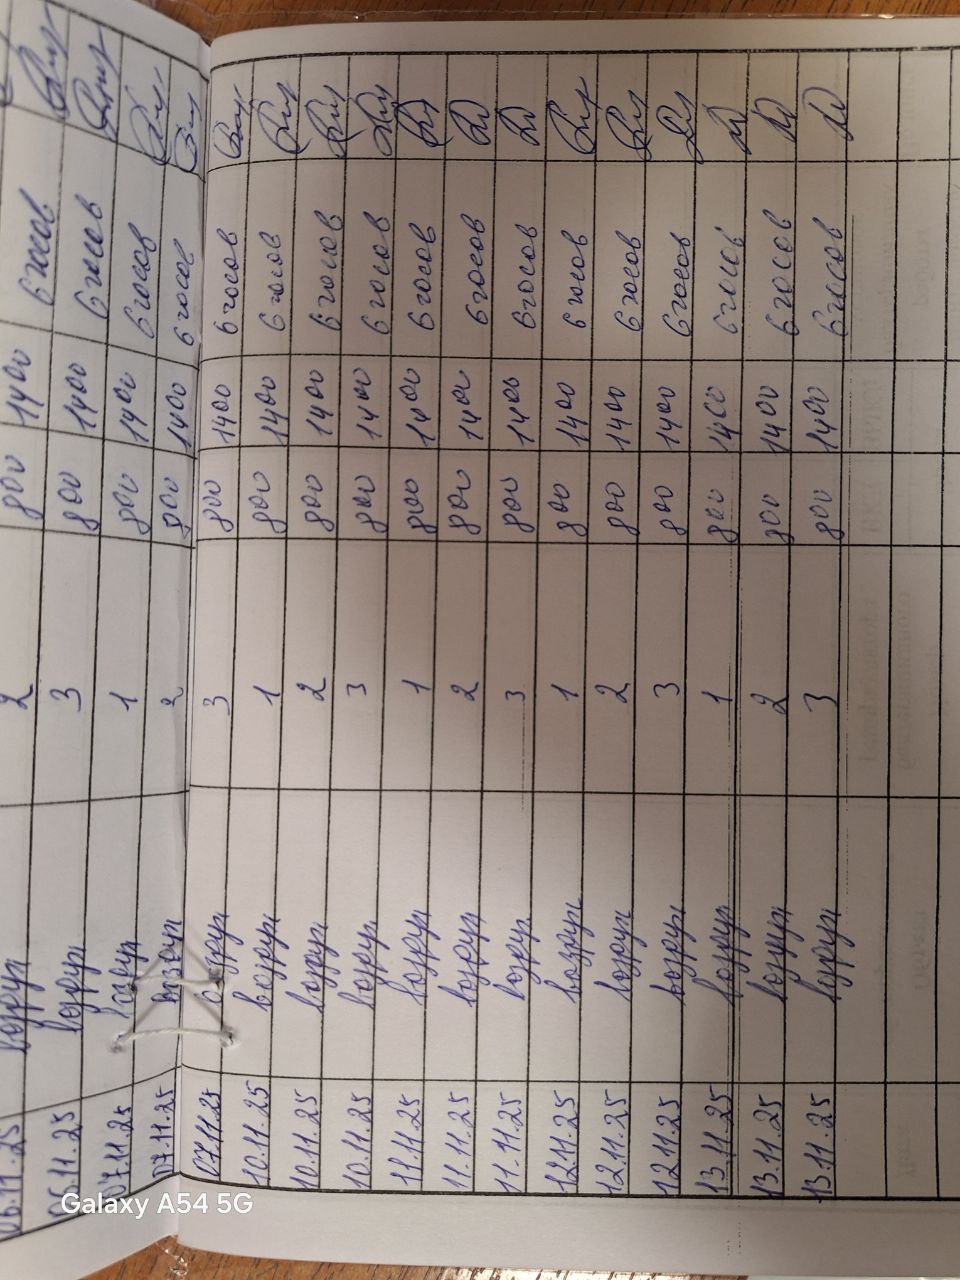 06.11.25 воздух 2 800 1400 6 часов
06.11.25 воздух 3 800 1400 6 часов
07.11.25 воздух 1 800 1400 6 часов
07.11.25 воздух 2 800 1400 6 часов
07.11.25 воздух 3 800 1400 6 часов
10.11.25 воздух 1 800 1400 6 часов
10.11.25 воздух 2 800 1400 6 часов
10.11.25 воздух 3 800 1400 6 часов
11.11.25 воздух 1 800 1400 6 часов
11.11.25 воздух 2 800 1400 6 часов
11.11.25 воздух 3 800 1400 6 часов
12.11.25 воздух 1 800 1400 6 часов
12.11.25 воздух 2 800 1400 6 часов
12.11.25 воздух 3 800 1400 6 часов
13.11.25 воздух 1 800 1400 6 часов
13.11.25 воздух 2 800 1400 6 часов
13.11.25 воздух 3 800 1400 6 часов
Galaxy A54 5G